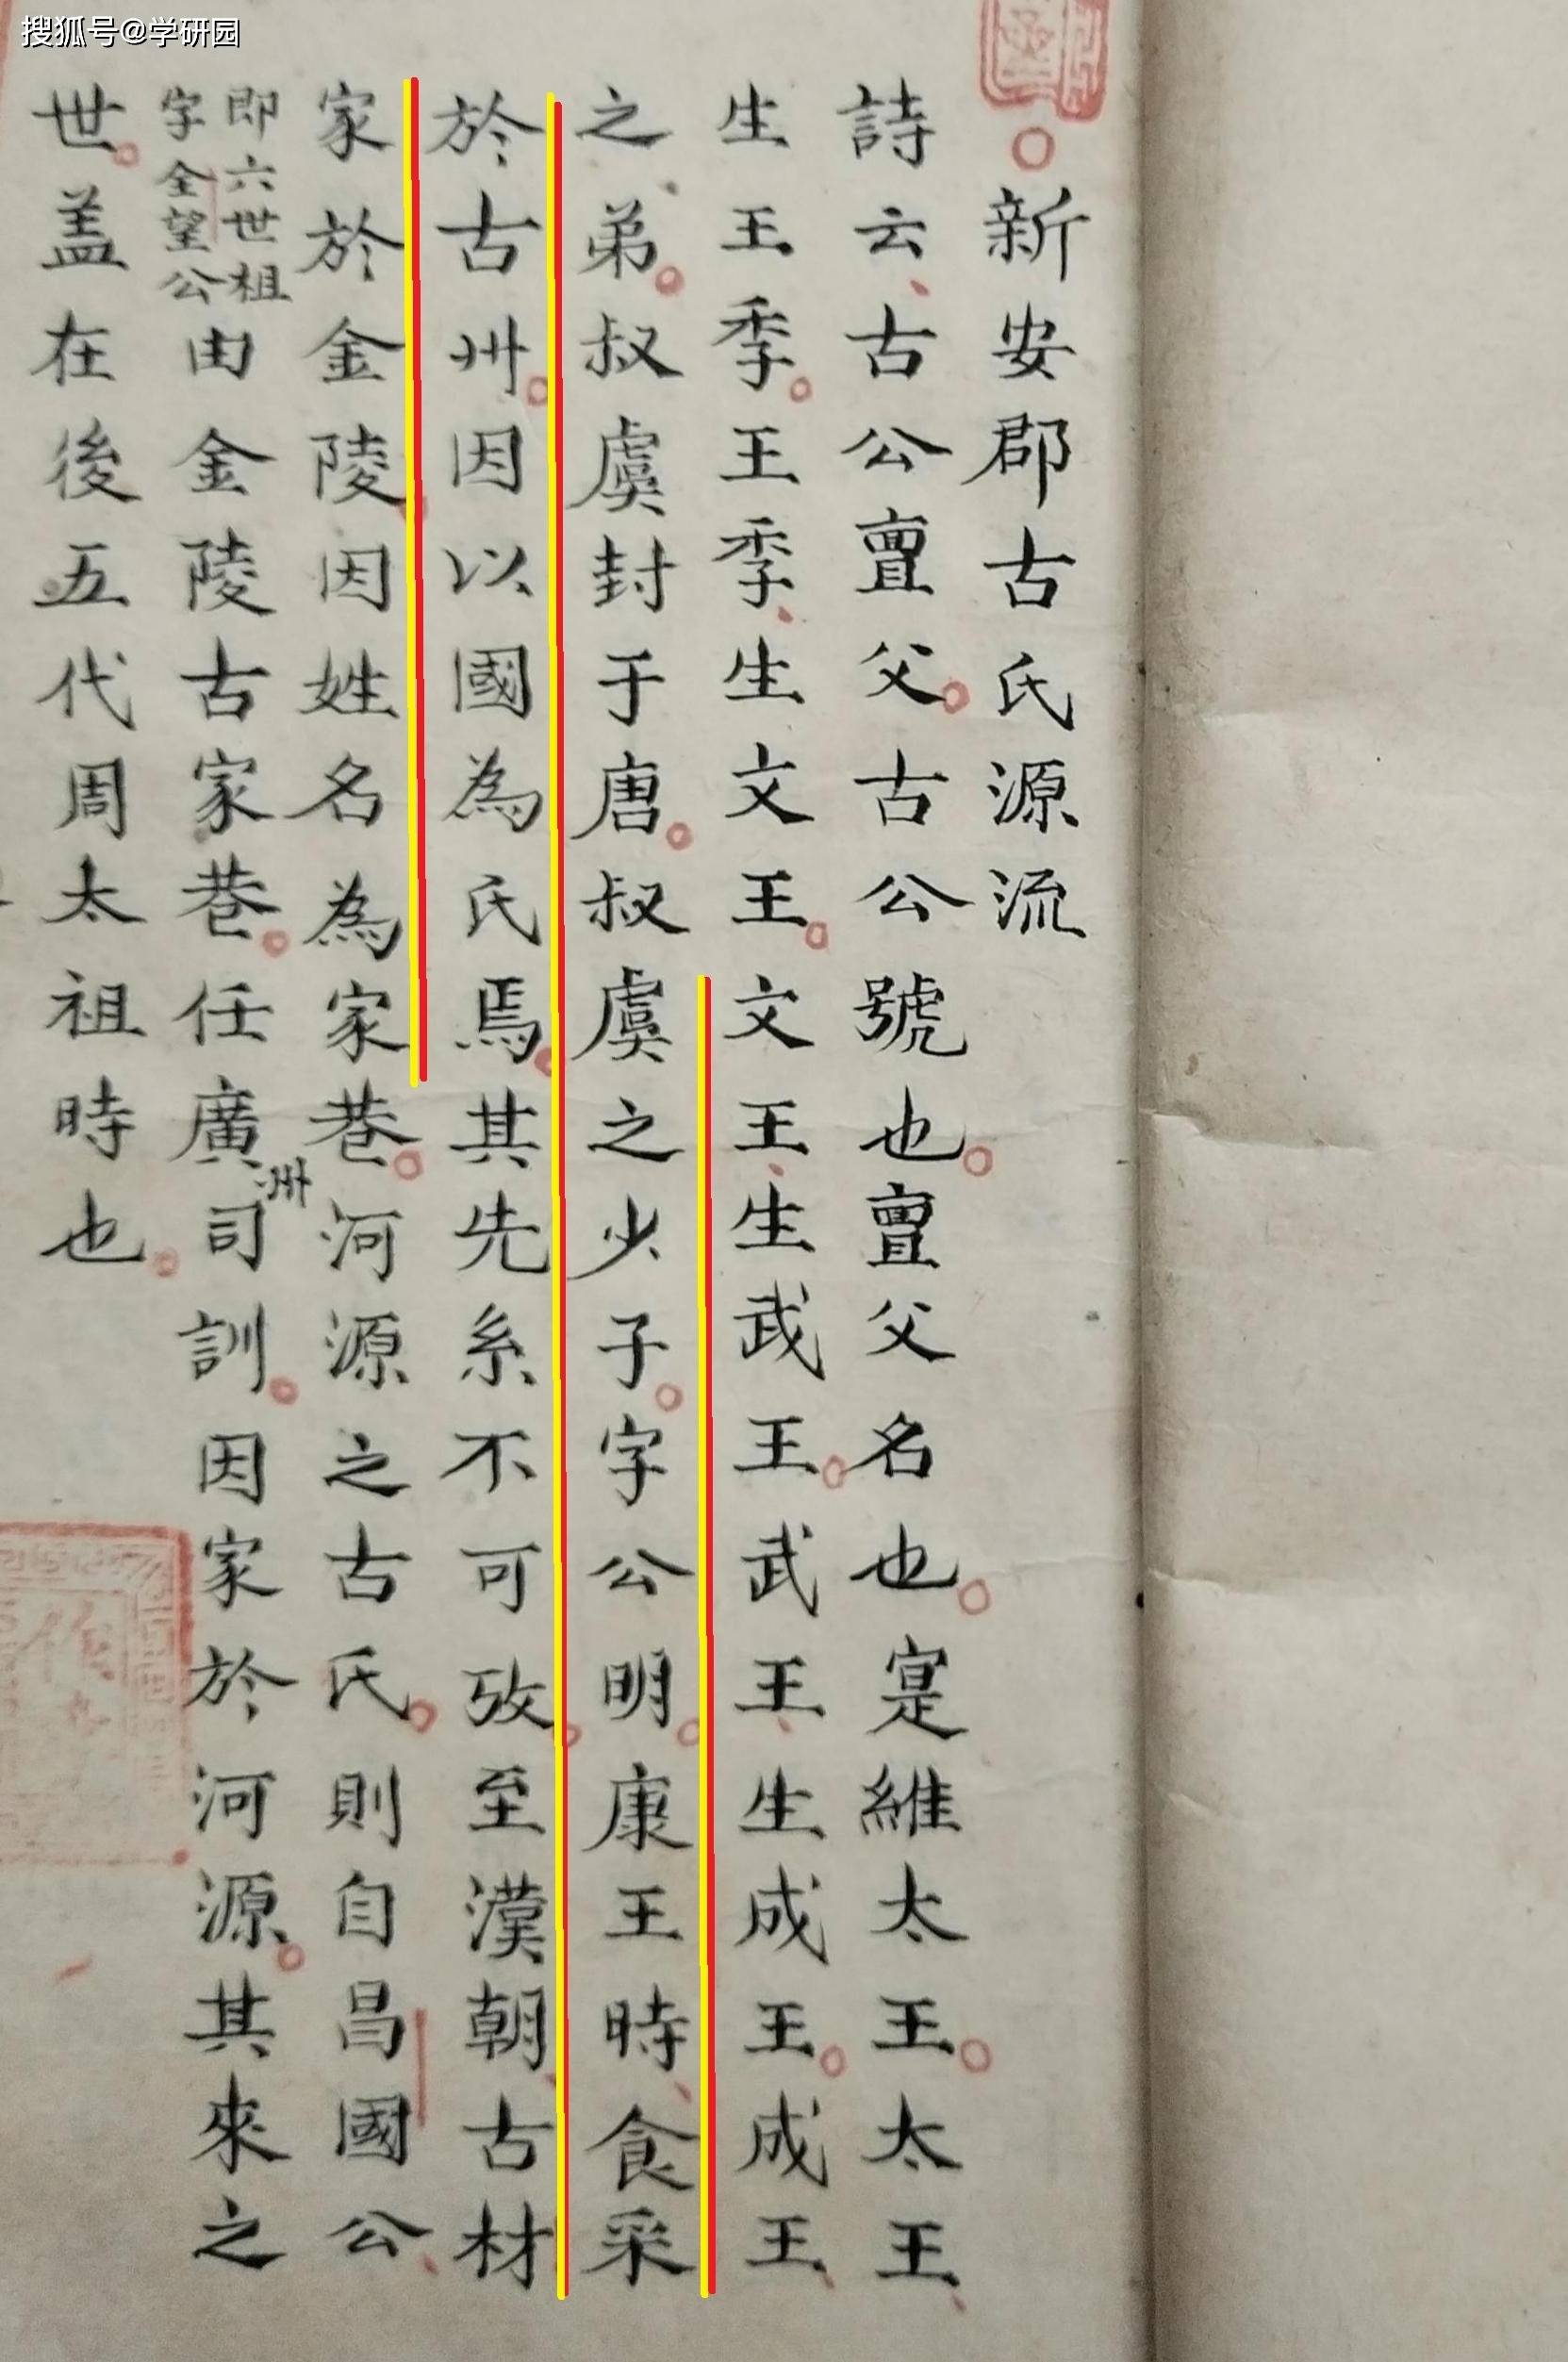 搜狐号@学研园
新安郡古氏源流
詩云古公亶父古公號也亶父名也寔維太王太王
生王季王季生文王文王生武王武王生成王成王
之弟叔虞封于唐叔虞之少子字公明康王時食采
於古州因以國為氏焉其先系不可攷至漢朝古材
家於金陵因姓名為家巷河源之古氏則自昌國公
即六世祖
字全望公
由金陵古家巷任廣州司訓因家於河源其來之
世盖在後五代周太祖時也